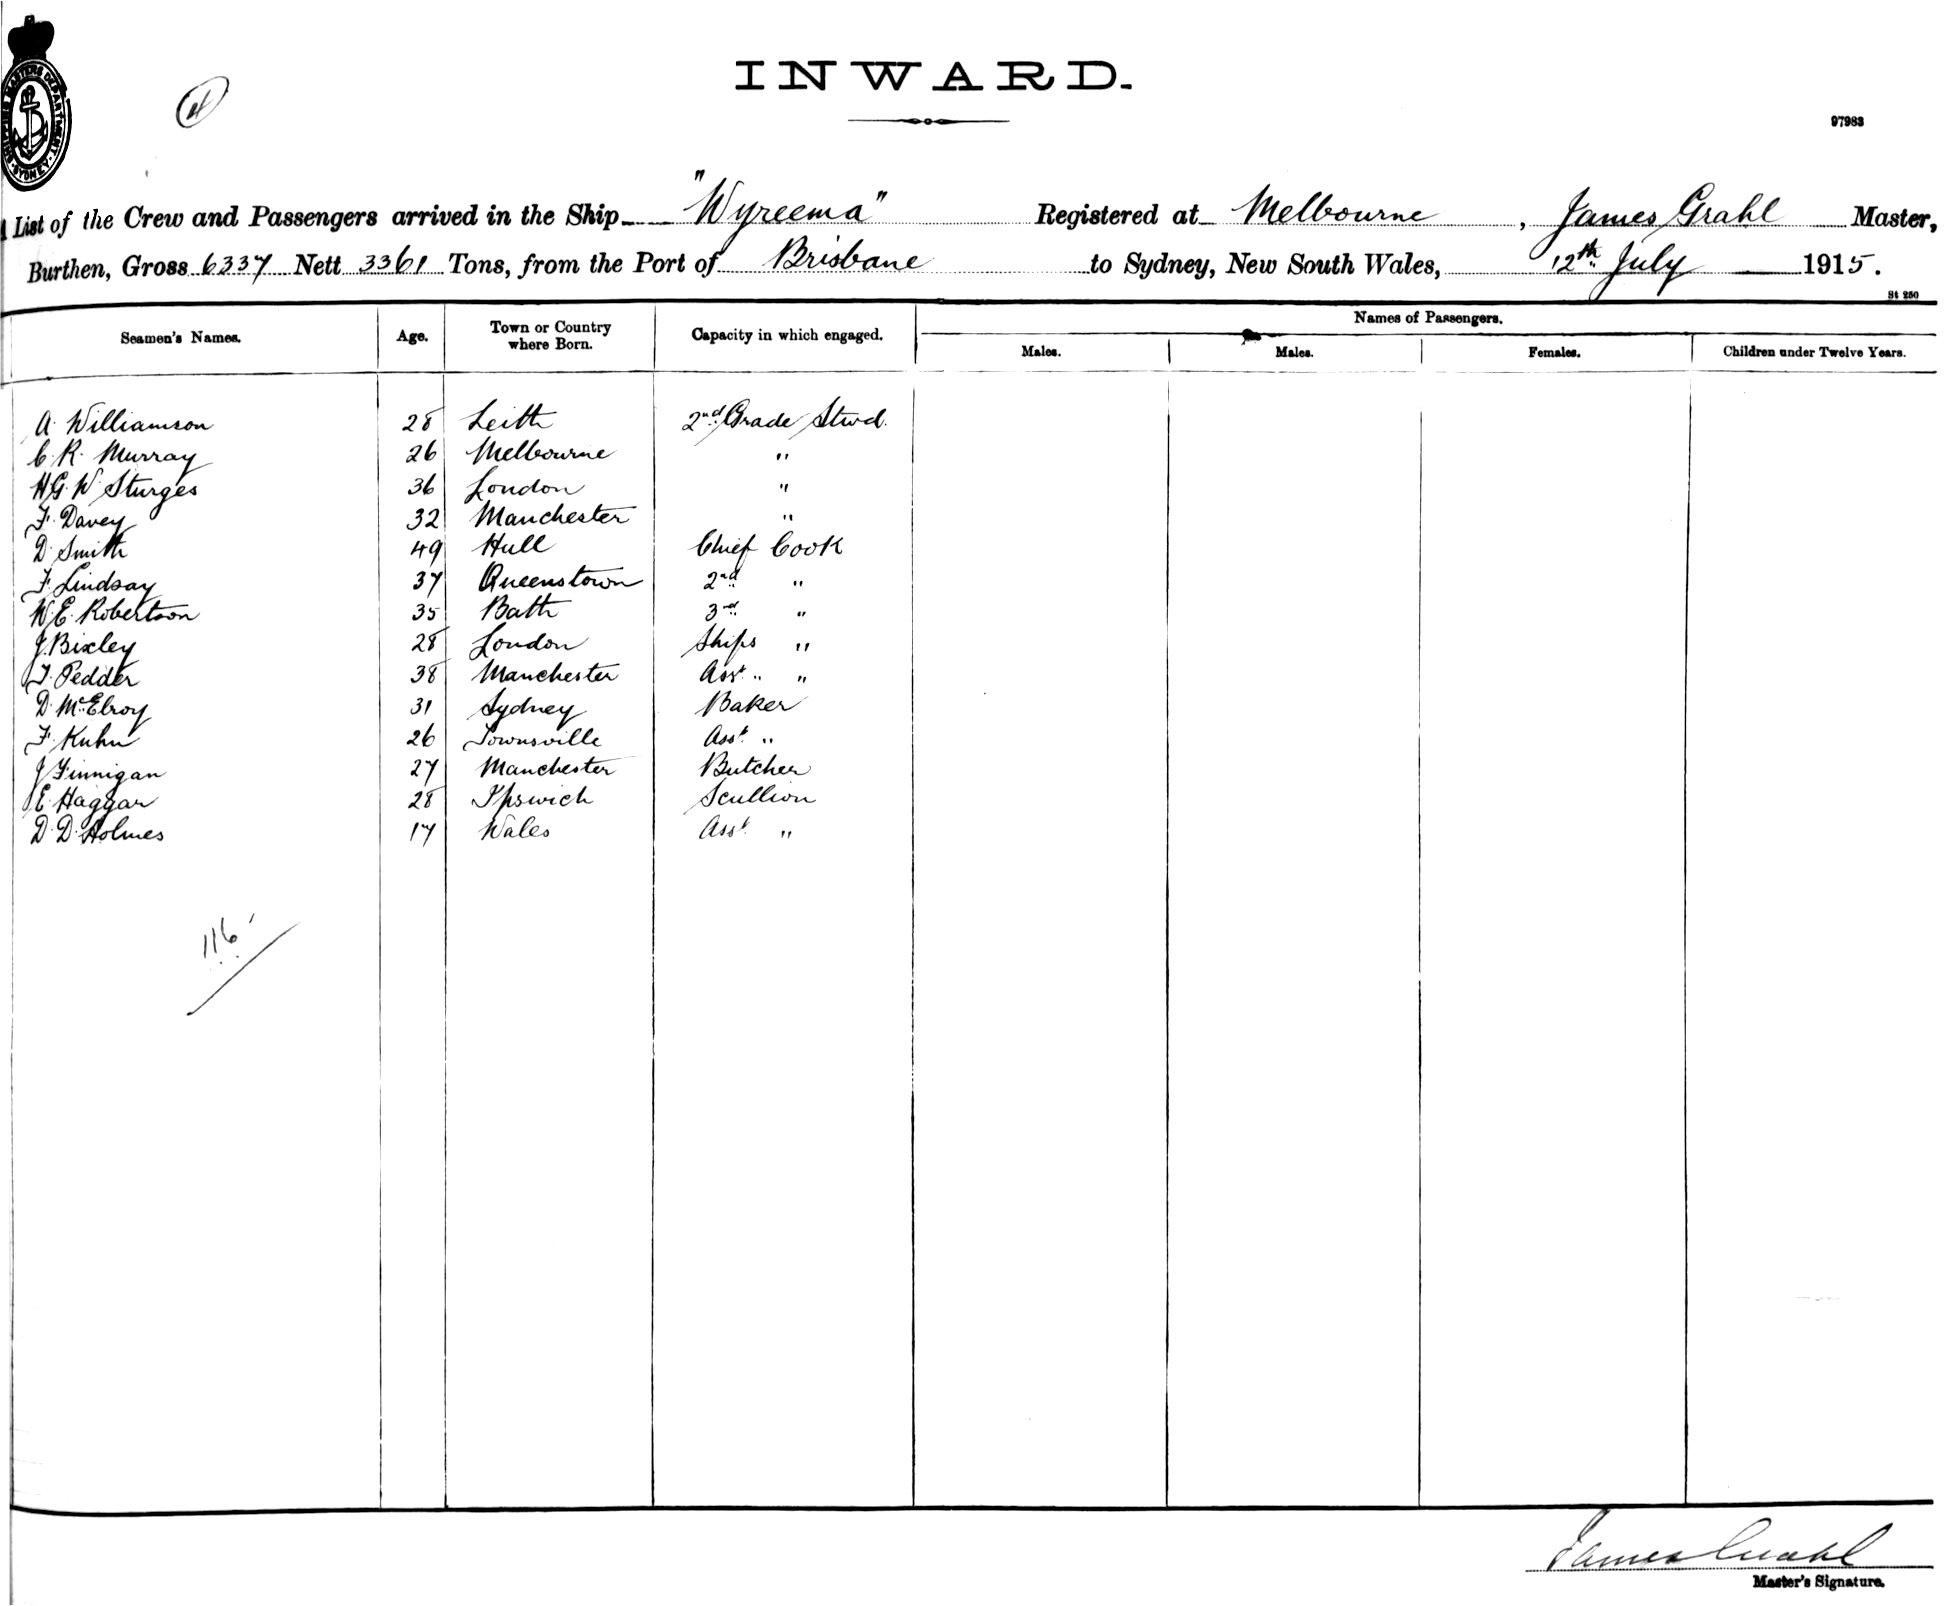 INWARD.
97983
SHIPPING MASTERS DEPARTMENT. SYDNEY
List of the Crew and Passengers arrived in the Ship "Wyreema" Registered at Melbourne, James Grahl Master,
Burthen, Gross 6337 Nett 3361 Tons, from the Port of Brisbane to Sydney, New South Wales, 12th July 1915.
St 250
Seamen's Names. Age. Town or Country where Born. Capacity in which engaged. Names of Passengers.
Males. Males. Females. Children under Twelve Years.
A. Williamson 28 Leith 2nd Grade Stwd.
C. R. Murray 26 Melbourne "
H. G. W. Sturges 36 London "
F. Davey 32 Manchester "
D. Smith 49 Hull Chief Cook
F. Lindsay 37 Queenstown 2nd "
W. E. Robertson 35 Bath 3rd "
J. Bixley 28 London Ships "
T. Pedder 38 Manchester Asst. " "
D. McElroy 31 Sydney Baker
F. Kuhn 26 Townsville Asst. "
J Finnigan 27 Manchester Butcher
E. Haggar 28 Ipswich Scullion
D. D. Holmes 17 Wales Asst. "
116
James Grahl
Master's Signature.